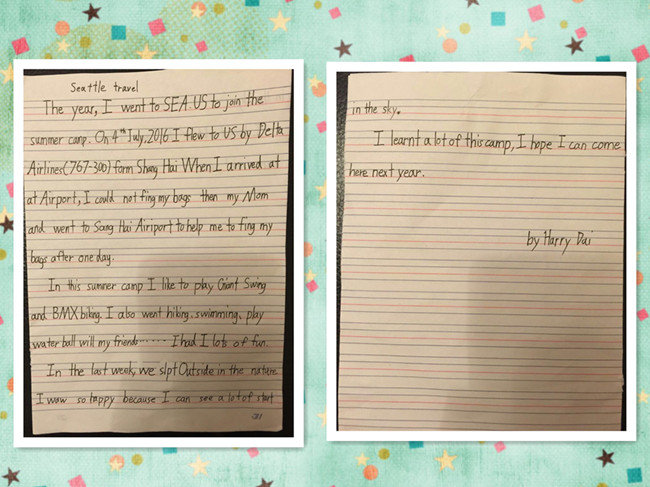 Seattle travel
The year, I went to SEA. US to join the
summer camp. On 4th July, 2016 I flew to US by Delta
Airlines(767-300) form Shang Hai When I arrived at
at Airport, I could not fing my bags then my Mom
and went to Sang Hai Airiport to help me to fing my
bags after one day.
In this summer camp I like to play Gient Swing
and BMX biking. I also went hiking. swimming, play
water ball will my friends······ I had I lots of fun.
In the last week, we slpt Outside in the nature
I waw so happy because I can see a lot of start
in the sky.
I learnt a lot of this camp, I hope I can come
here next year.
by Harry Dai